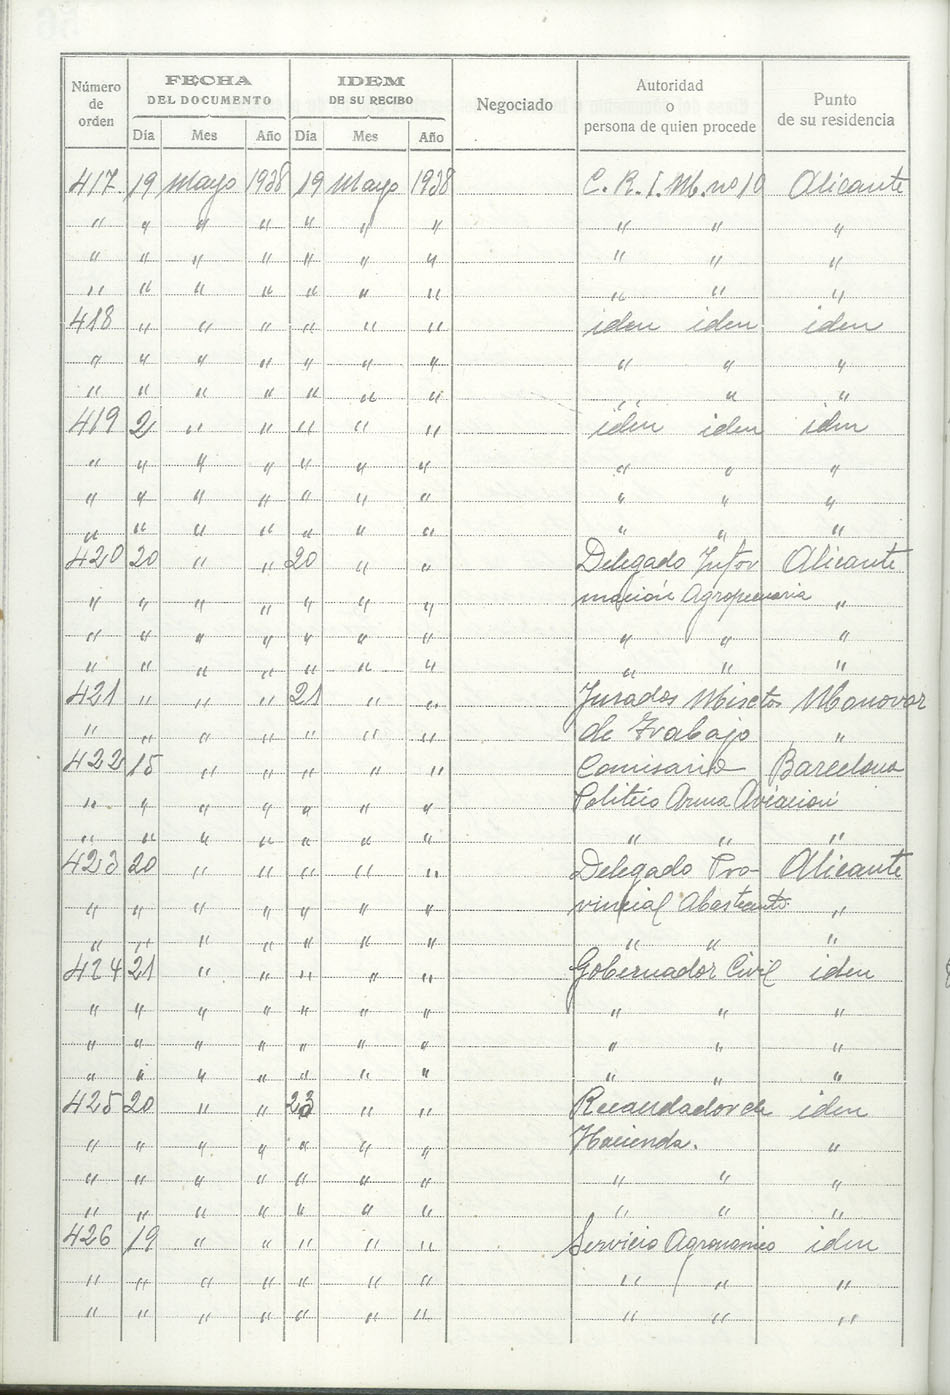 Número de orden FECHA DEL DOCUMENTO IDEM DE SU RECIBO Negociado Autoridad o persona de quien procede Punto de su residencia
Día Mes Año Día Mes Año
417 19 Mayo 1938 19 Mayo 1938 C. R. I. M. nº 10 Alicante
" " " " " " " " " "
" " " " " " " " " "
" " " " " " " " " "
418 " " " " " " iden iden iden
" " " " " " " " " "
" " " " " " " " " "
419 2 " " " " " iden iden iden
" " " " " " " " " "
" " " " " " " " " "
" " " " " " " " " "
420 20 " " 20 " " Delegado Infor Alicante
" " " " " " " mación Agropecuaria "
" " " " " " " " " "
" " " " " " " " " "
421 " " " 21 " " Jurados Mixtos Monovar
" " " " " " " de Trabajo "
422 15 " " " " " Comisario Barcelona
" " " " " " " Politico Arma Aviación
" " " " " " " " " "
423 20 " " " " " Delegado Pro- Alicante
" " " " " " " vincial Abastecmto. "
" " " " " " " " " "
424 21 " " " " " Gobernador Civil iden
" " " " " " " " " "
" " " " " " " " " "
" " " " " " " " " "
425 20 " " 23 " " Recaudador de iden
" " " " " " " Hacienda. "
" " " " " " " " " "
" " " " " " " " " "
426 19 " " " " " Servicio Agronomico iden
" " " " " " " " " "
" " " " " " " " " "